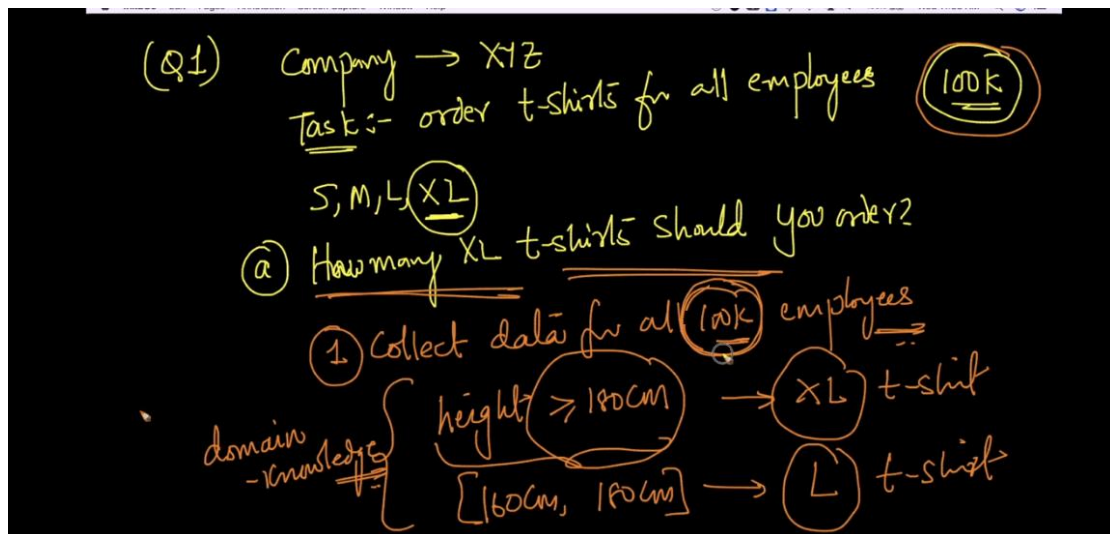 (Q1) Company → XYZ
Task:- order t-shirts for all employees 100K
S, M, L, XL
(a) How many XL t-shirts should you order?
(1) Collect data for all 100K employees
height ≥ 180cm → XL t-shirt
domain
-knowledge
[160cm, 180cm] → L t-shirt